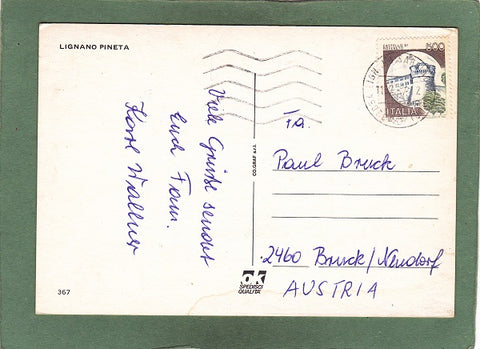 LIGNANO PINETA
Viele Grüße sendet
Euch Fam.
Karl Wallner
367
CO.GRAF s.r.l.
ok
SPEDISCI
QUALITÀ
500
ITALIA
Fa.
Paul Bruck
2460 Bruck/Neudorf
AUSTRIA